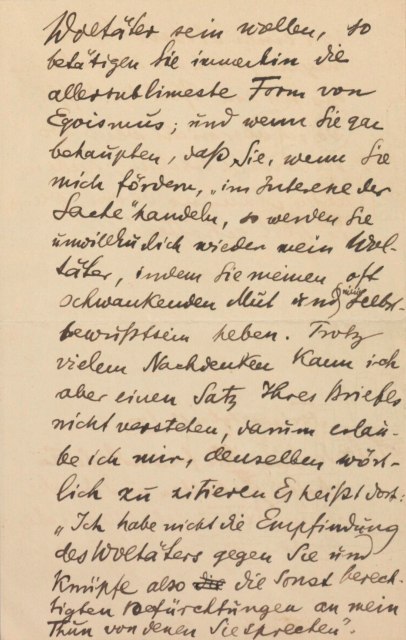 Woltäter sein wollen, so
betätigen Sie immerhin die
allersublimeste Form von
Egoismus; und wenn Sie gar
behaupten, daß Sie, wenn Sie
mich fördern, „im Interesse der
Sache“ handeln, so werden Sie
unwillkürlich wieder mein Wol-
täter, indem Sie meinen oft
schwankenden Mut und mein Selbst-
bewußtsein heben. Trotz
vielem Nachdenken kann ich
aber einen Satz Ihres Briefes
nicht verstehen, darum erlau-
be ich mir, denselben wört-
lich zu zitieren Es heißt dort:
„Ich habe nicht die Empfindung
des Woltäters gegen Sie und
Knüpfe also die die sonst berech-
tigten Befürchtungen an mein
Thun von denen Sie sprechen“.